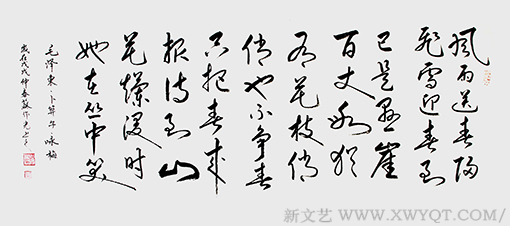 風雨送春歸
飛雪迎春到
已是悬崖
百丈冰犹
有花枝俏
俏也不争春
只把春来
报春到山
花爛漫时
她在丛中笑
毛泽東卜算子咏梅
歲在戊戌仲春
新文艺 WWW.XWYQT.COM